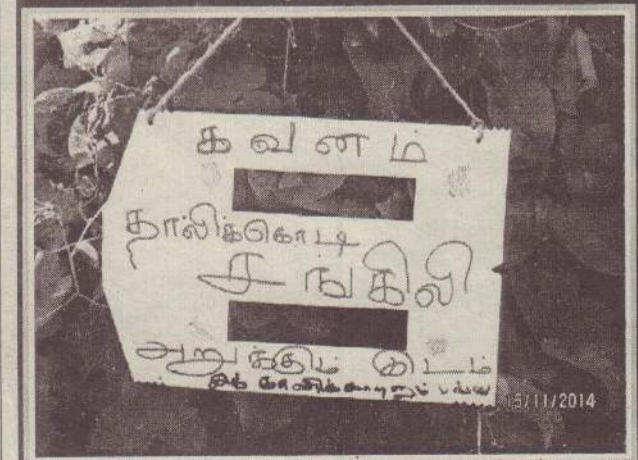 கவனம்
தாலிக்கொடி
சங்கிலி
அறுக்கும் இடம்
15/11/2014